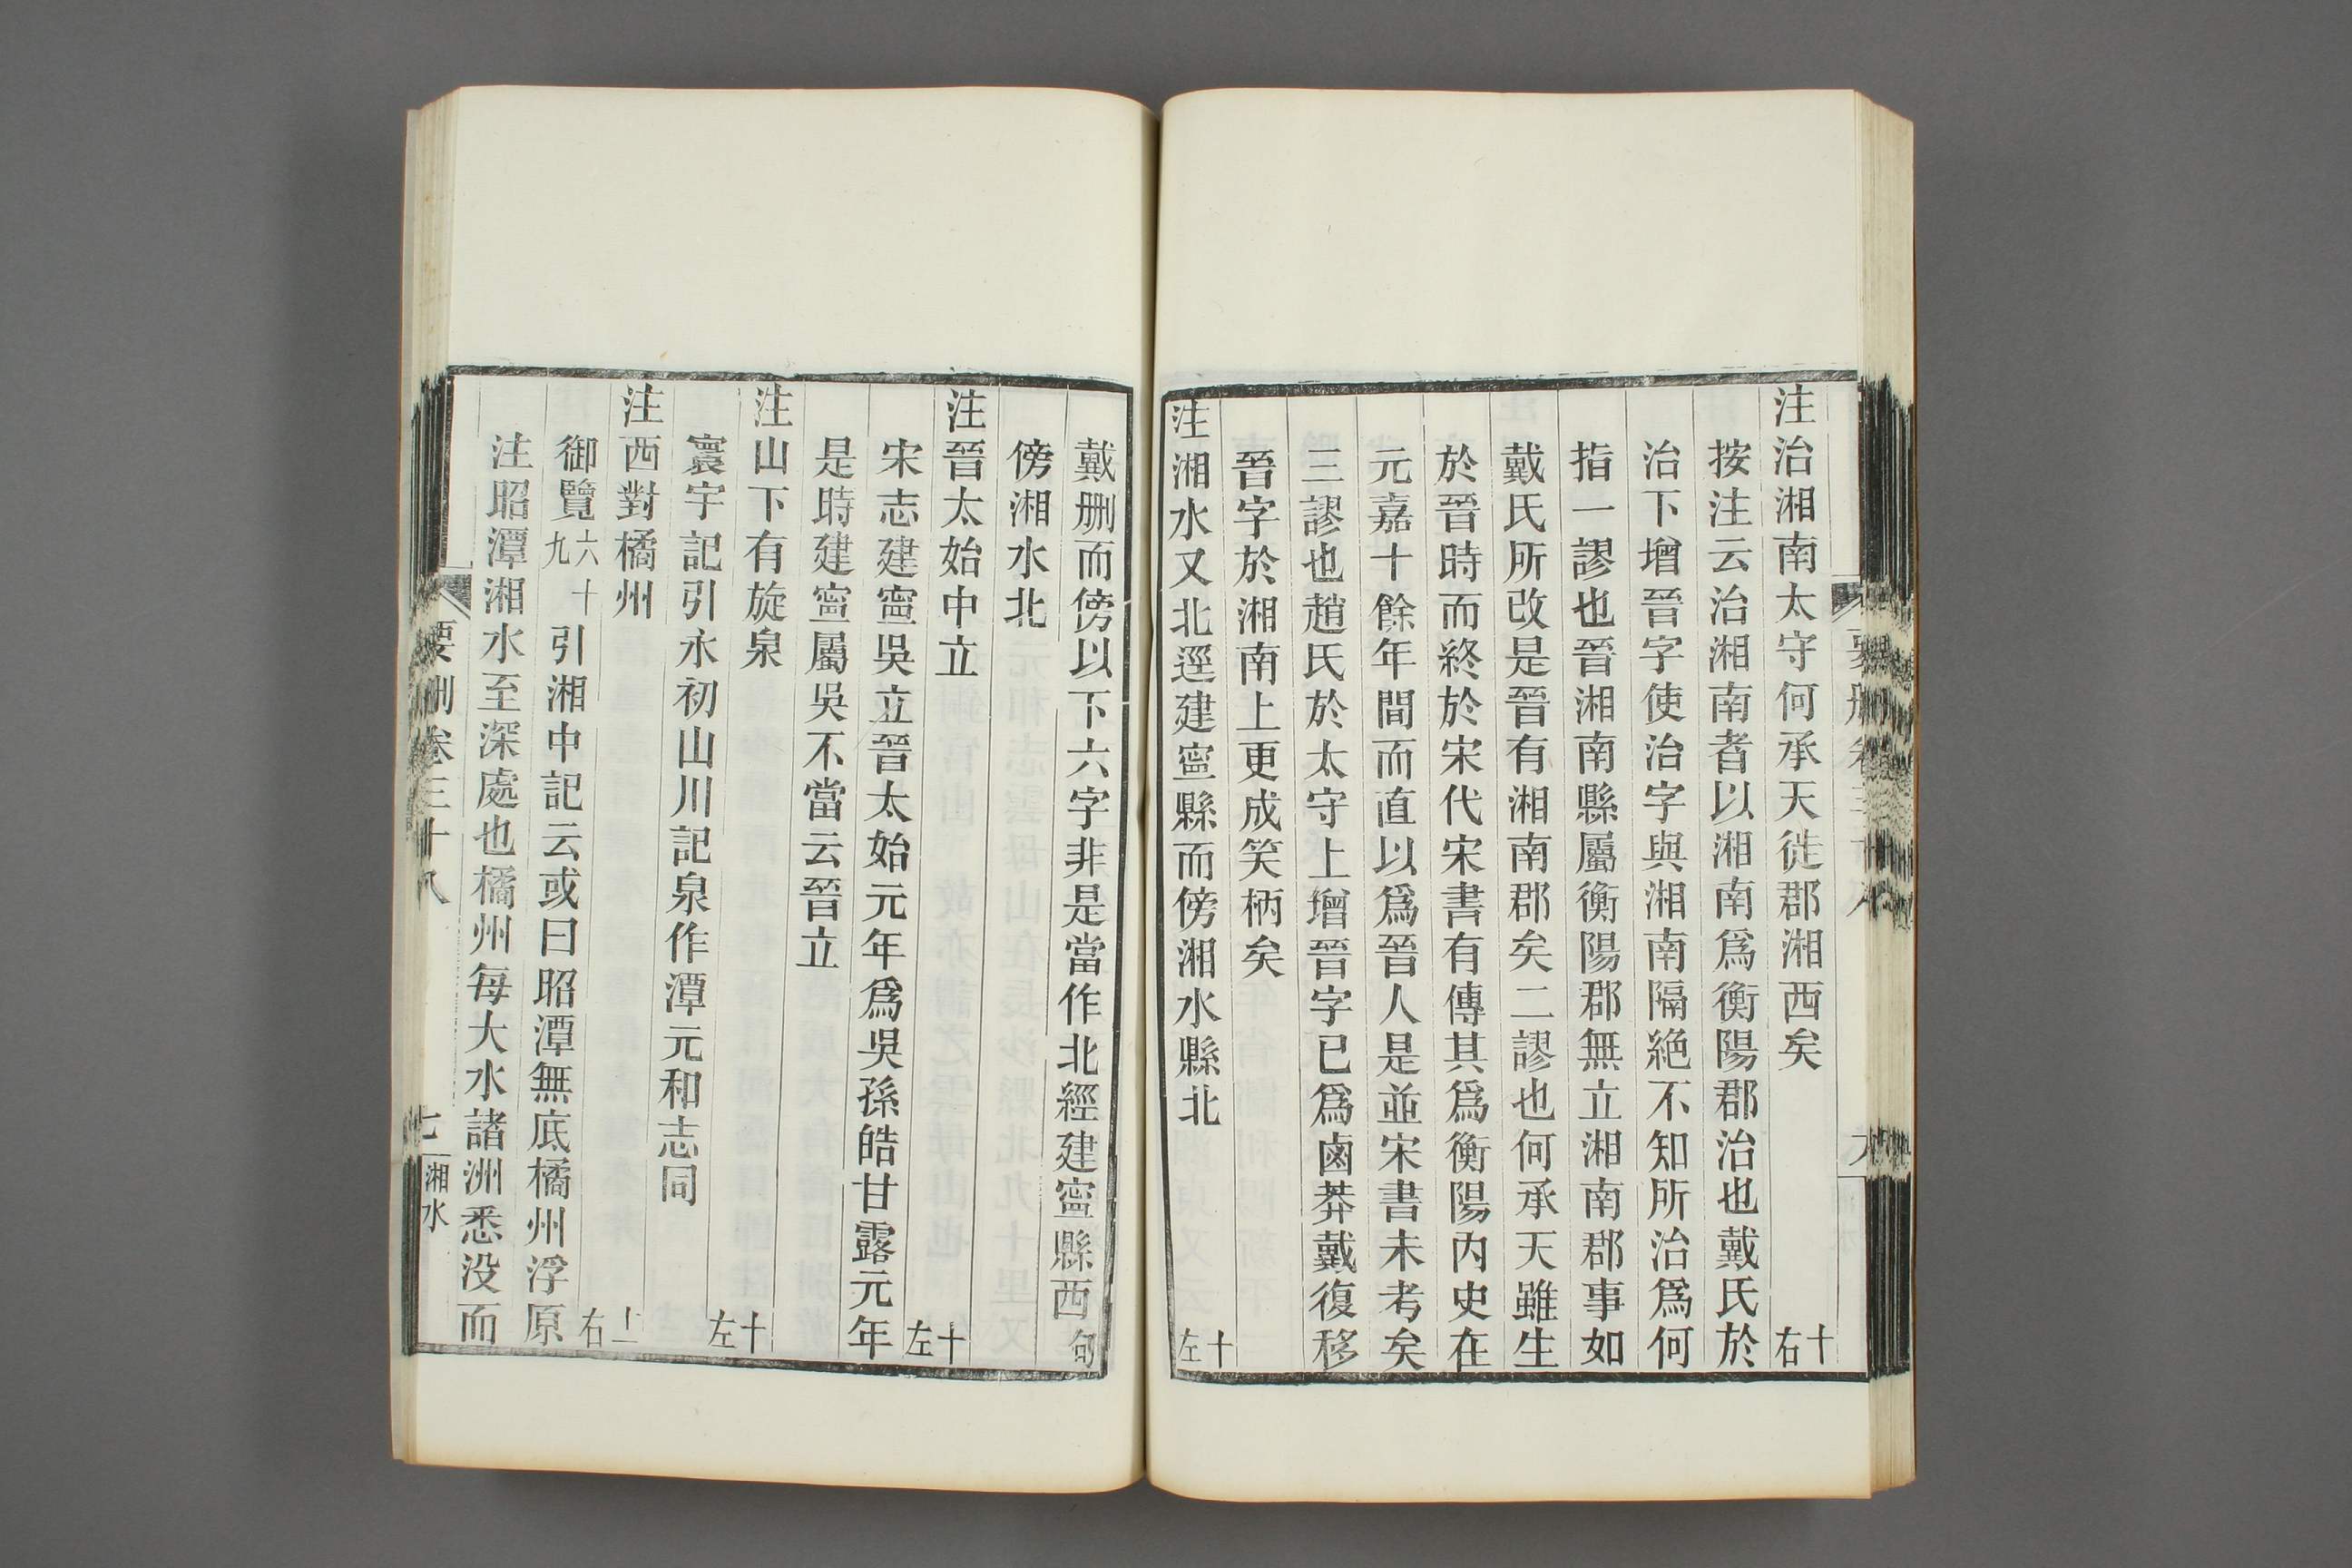 注治湘南太守何承天徙郡湘西矣 十右
按注云治湘南者以湘南爲衡陽郡治也戴氏於
治下增晉字使治字與湘南隔絶不知所治爲何
指一謬也晉湘南縣屬衡陽郡無立湘南郡事如
戴氏所改是晉有湘南郡矣二謬也何承天雖生
於晉時而終於宋代宋書有傳其爲衡陽内史在
元嘉十餘年間而直以爲晉人是並宋書未考矣
三謬也趙氏於太守上增晉字已爲鹵莽戴復移
晉字於湘南上更成笑柄矣
注湘水又北逕建寧縣而傍湘水縣北 十左
戴删而傍以下六字非是當作北經建寧縣西句
傍湘水北
注晉太始中立 十左
宋志建寧吳立晉太始元年爲吳孫皓甘露元年
是時建寧屬吳不當云晉立
注山下有旋泉 十左
寰宇記引永初山川記泉作潭元和志同
注西對橘州 十一右
御覽六十九引湘中記云或曰昭潭無底橘州浮原
注昭潭湘水至深處也橘州每大水諸洲悉没而
要删卷三十八 七 湘水